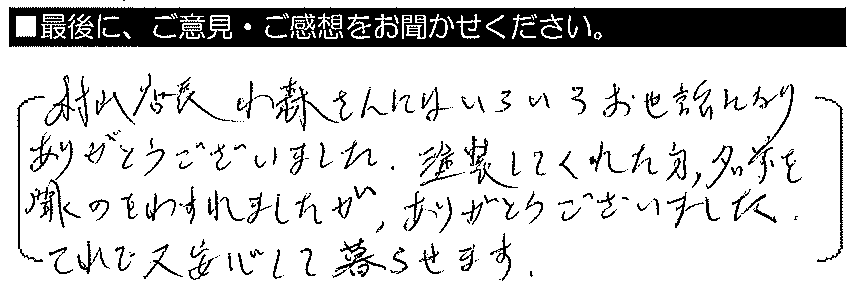 ■最後に、ご意見・ご感想をお聞かせください。
村山店長 小森さんにはいろいろお世話になり
ありがとうございました. 塗装してくれた方, 名前を
聞くのをわすれましたが, ありがとうございました.
これで又安心して暮らせます.